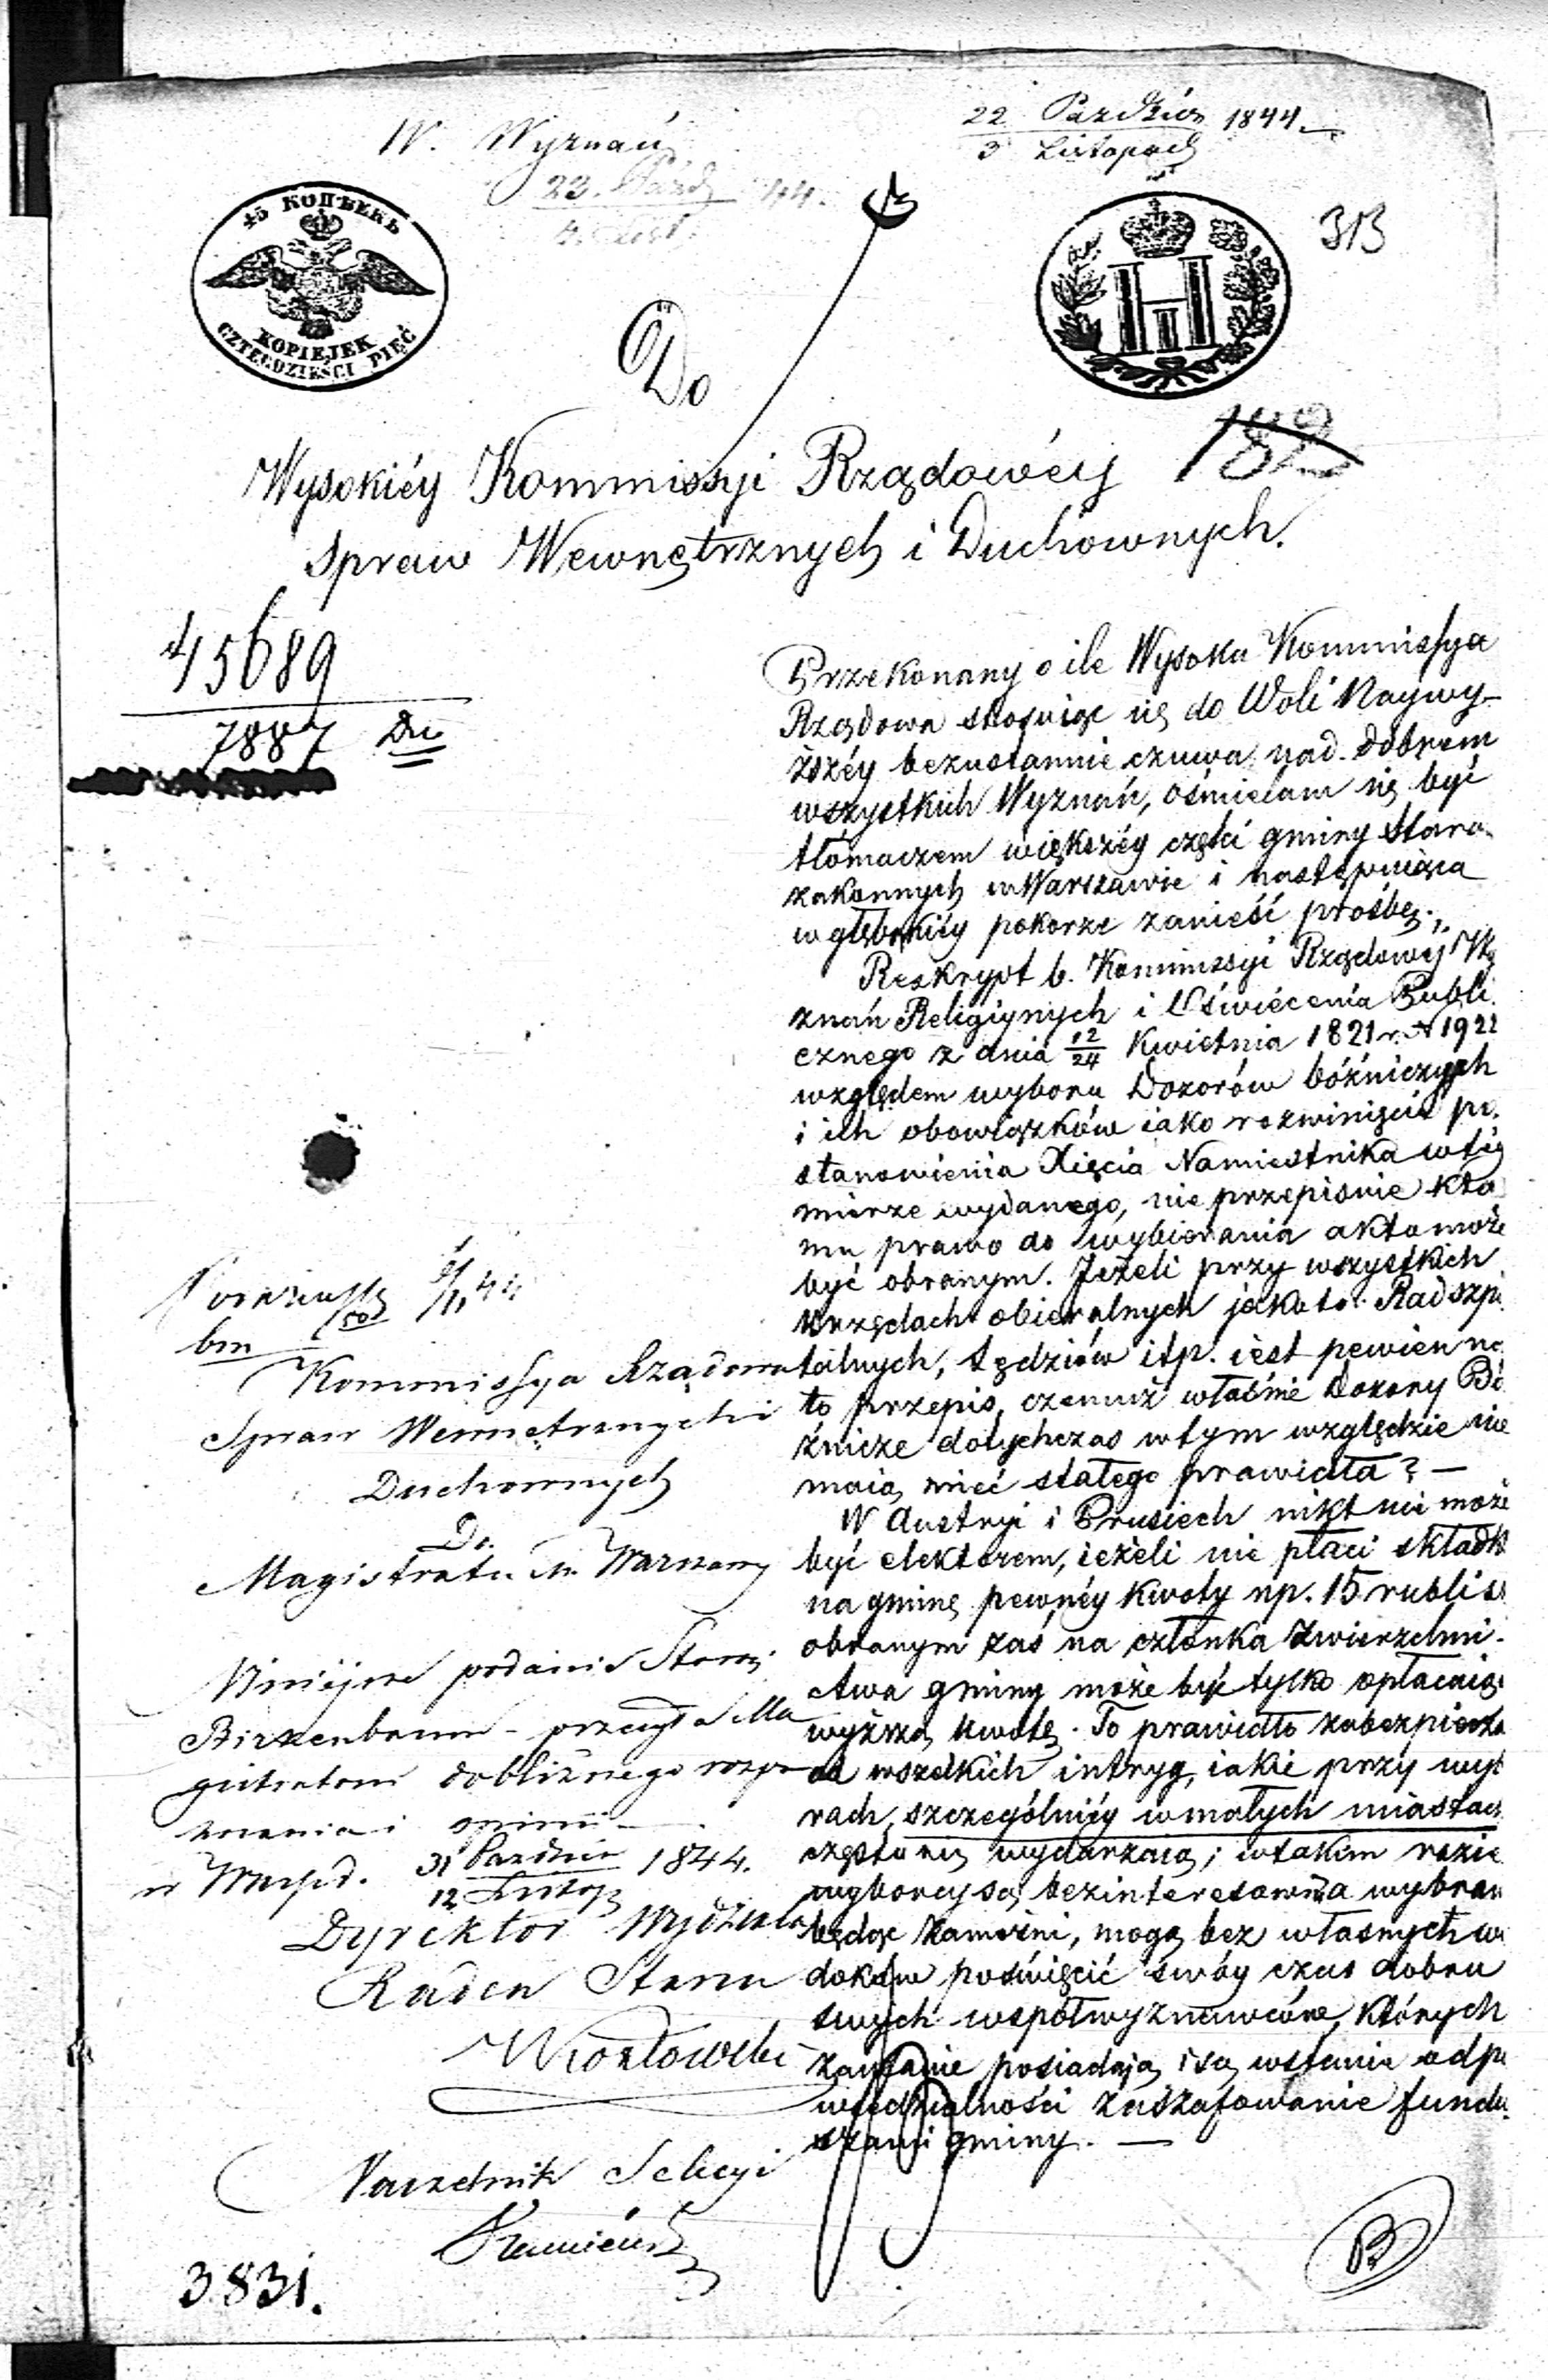 W. Wyznań
22 Paździer 1844
3 Listopad
23. Paźd 44.
45 КОПѢЕКЪ
KOPIEJEK
CZTERDZIEŚCI PIĘĆ
313
182
Do
Wysokiéy Kommissyi Rządowéy
Spraw Wewnętrznych i Duchownych.
45689
7887
Przekonany o ile Wysoka Kommissya
Rządowa stosuiąc się do Woli Naywy-
ższéy bezustannie czuwa nad dobrem
wszystkich Wyznań, ośmielam się być
tłómaczem większéy części gminy Staro-
zakonnych w Warszawie i następuiącą
w głębokiéy pokorze zanieść prośbę.
Reskrypt b. Kommissyi Rządowéj Wy
znań Religiynych i Oświécenia Publi
cznego z dnia 12/24 Kwietnia 1821 r. N 1922
względem wyboru Dozorów bóźniczych
i ich obowiązków iako rozwinięcie po
stanowienia Xięcia Namiestnika w téy
mierze wydanego, nie przepisuie kto
ma prawo do wybierania a kto może
być obranym. Jeżeli przy wszystkich
Urzędach obieralnych jakoto: Rad szpi
talnych, Sędziów itp. iest pewien na
to przepis, czemuż właśnie Dozory Bó
źnicze dotychczas w tym względzie nie
maią mieć stałego prawidła? —
W Austryi i Prusiech nikt nie może
być elektorem, ieżeli nie płaci składki
na gminę pewnéy kwoty np. 15 rubli sr
obranym zaś na członka Zwierzchni-
ctwa gminy może być tylko opłacaią
wyższą kwotę. To prawidło zabezpiecza
od wszelkich intryg, iakie przy wyb
rach, szczególniéy w małych miastach
często się wydarzaią; w takim razie
wyborcy są bezinteresowni a wybran
będąc zamożni, mogą bez własnych wi
doków poświęcić swóy czas dobru
swych współwyznawców, których
zaufanie posiadają i są w stanie odpo
wiedzialności za szafowanie fundu
szami gminy. —
Kommissya Rządowa
Spraw Wewnętrznych i
Duchownych
Do
Magistratu M. Warszawy
Niniéjsze podanie Staroz.
Birzenbaum - przesyła Ma
gistratowi do bliższego rozpo
znania i opinii
w Warsz. d. 31 Paździer 1844.
12 Listop
Dyrektor Wydziału
Radca Stanu
Naczelnik Sekcyi
3831.